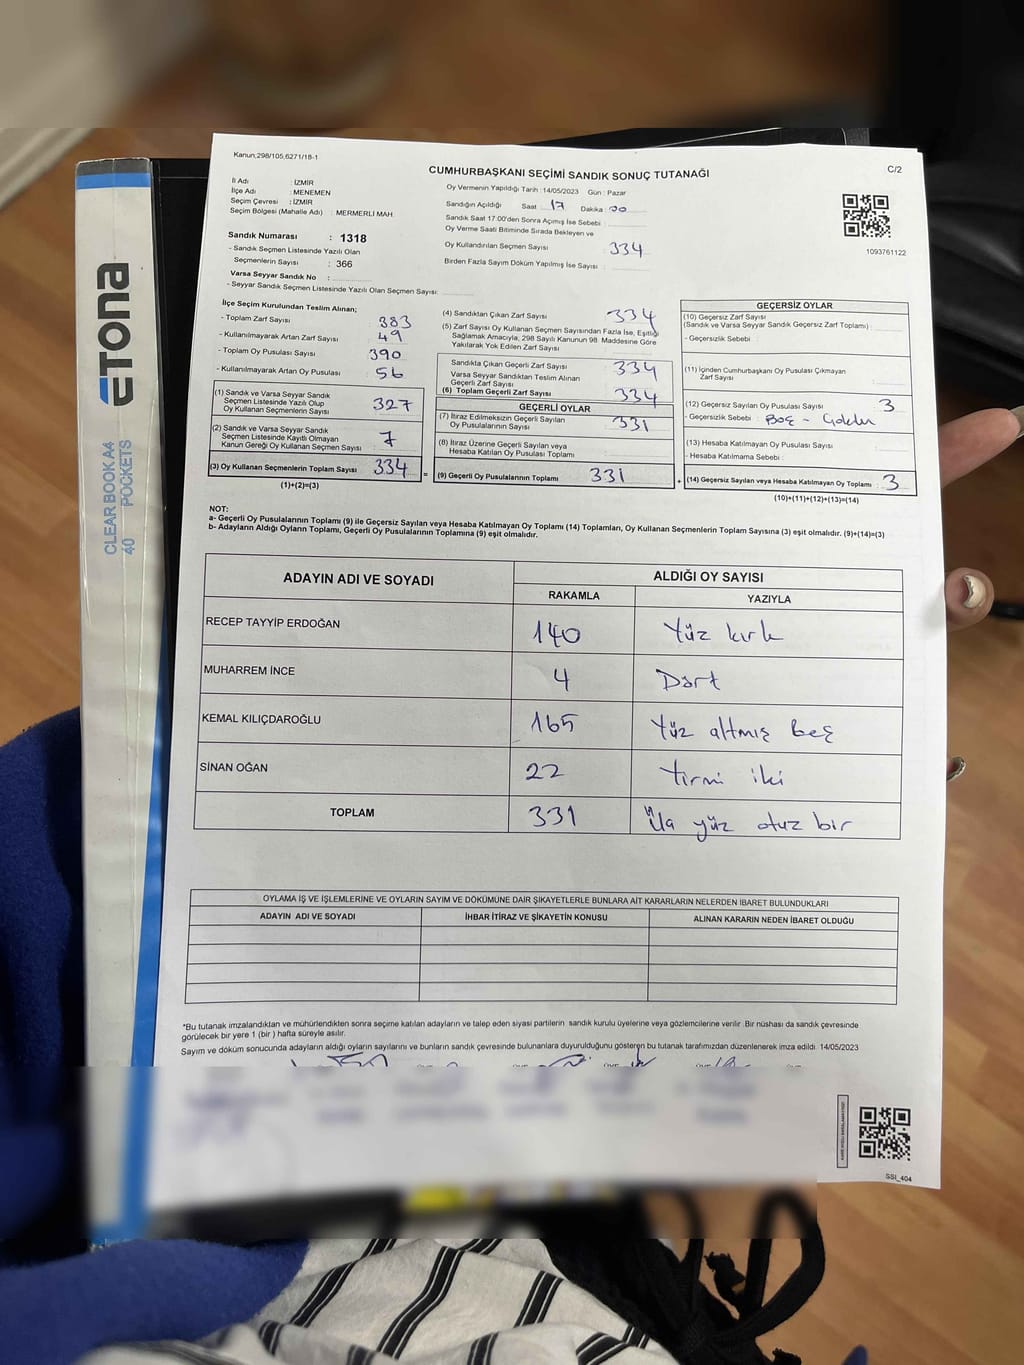 Kanun;298/105,6271/18-1
CUMHURBAŞKANI SEÇİMİ SANDIK SONUÇ TUTANAĞI
C/2
İl Adı : İZMİR
İlçe Adı : MENEMEN
Seçim Çevresi : İZMİR
Seçim Bölgesi (Mahalle Adı) : MERMERLİ MAH.
Sandık Numarası : 1318
- Sandık Seçmen Listesinde Yazılı Olan
Seçmenlerin Sayısı : 366
Varsa Seyyar Sandık No :
- Seyyar Sandık Seçmen Listesinde Yazılı Olan Seçmen Sayısı:
Oy Vermenin Yapıldığı Tarih : 14/05/2023 Gün : Pazar
Sandığın Açıldığı Saat 17 Dakika 00
Sandık Saat 17:00'den Sonra Açımış İse Sebebi :
Oy Verme Saati Bitiminde Sırada Bekleyen ve
Oy Kullandırılan Seçmen Sayısı 334
Birden Fazla Sayım Döküm Yapılmış İse Sayısı :
1093761122
İlçe Seçim Kurulundan Teslim Alınan;
- Toplam Zarf Sayısı : 383
- Kullanılmayarak Artan Zarf Sayısı : 49
- Toplam Oy Pusulası Sayısı : 390
- Kullanılmayarak Artan Oy Pusulası : 56
(1) Sandık ve Varsa Seyyar Sandık
Seçmen Listesinde Yazılı Olup
Oy Kullanan Seçmenlerin Sayısı 327
(2) Sandık ve Varsa Seyyar Sandık
Seçmen Listesinde Kayıtlı Olmayan
Kanun Gereği Oy Kullanan Seçmen Sayısı 7
(3) Oy Kullanan Seçmenlerin Toplam Sayısı 334
(1)+(2)=(3)
(4) Sandıktan Çıkan Zarf Sayısı 334
(5) Zarf Sayısı Oy Kullanan Seçmen Sayısından Fazla İse, Eşitliği
Sağlamak Amacıyla, 298 Sayılı Kanunun 98. Maddesine Göre
Yakılarak Yok Edilen Zarf Sayısı
Sandıkta Çıkan Geçerli Zarf Sayısı 334
Varsa Seyyar Sandıktan Teslim Alınan
Geçerli Zarf Sayısı
(6) Toplam Geçerli Zarf Sayısı 334
GEÇERLİ OYLAR
(7) İtiraz Edilmeksizin Geçerli Sayılan
Oy Pusulasının Sayısı 331
(8) İtiraz Üzerine Geçerli Sayılan veya
Hesaba Katılan Oy Pusulası Toplamı
= (9) Geçerli Oy Pusulalarının Toplamı 331
GEÇERSİZ OYLAR
(10) Geçersiz Zarf Sayısı
(Sandık ve Varsa Seyyar Sandık Geçersiz Zarf Toplamı) :
- Geçersizlik Sebebi :
(11) İçinden Cumhurbaşkanı Oy Pusulası Çıkmayan
Zarf Sayısı
(12) Geçersiz Sayılan Oy Pusulası Sayısı : 3
- Geçersizlik Sebebi : Boş -
(13) Hesaba Katılmayan Oy Pusulası Sayısı :
- Hesaba Katılmama Sebebi :
+ (14) Geçersiz Sayılan veya Hesaba Katılmayan Oy Toplamı : 3
(10)+(11)+(12)+(13)=(14)
NOT:
a- Geçerli Oy Pusulalarının Toplamı (9) ile Geçersiz Sayılan veya Hesaba Katılmayan Oy Toplamı (14) Toplamları, Oy Kullanan Seçmenlerin Toplam Sayısına (3) eşit olmalıdır. (9)+(14)=(3)
b- Adayların Aldığı Oyların Toplamı, Geçerli Oy Pusulalarının Toplamına (9) eşit olmalıdır.
ADAYIN ADI VE SOYADI ALDIĞI OY SAYISI
RAKAMLA YAZIYLA
RECEP TAYYİP ERDOĞAN 140 Yüz kırk
MUHARREM İNCE 4 Dört
KEMAL KILIÇDAROĞLU 165 Yüz altmış beş
SİNAN OĞAN 22 Yirmi iki
TOPLAM 331 Üç yüz otuz bir
OYLAMA İŞ VE İŞLEMLERİNE VE OYLARIN SAYIM VE DÖKÜMÜNE DAİR ŞİKAYETLERLE BUNLARA AİT KARARLARIN NELERDEN İBARET BULUNDUKLARI
ADAYIN ADI VE SOYADI İHBAR İTİRAZ VE ŞİKAYETİN KONUSU ALINAN KARARIN NEDEN İBARET OLDUĞU
*Bu tutanak imzalandıktan ve mühürlendikten sonra seçime katılan adayların ve talep eden siyasi partilerin sandık kurulu üyelerine veya gözlemcilerine verilir. Bir nüshası da sandık çevresinde
görülecek bir yere 1 (bir ) hafta süreyle asılır.
Sayım ve döküm sonucunda adayların aldığı oyların sayılarını ve bunların sandık çevresinde bulunanlara duyurulduğunu gösteren bu tutanak tarafımızdan düzenlenerek imza edildi. 14/05/2023
SSI_404
ETONA
CLEAR BOOK A4
40 POCKETS